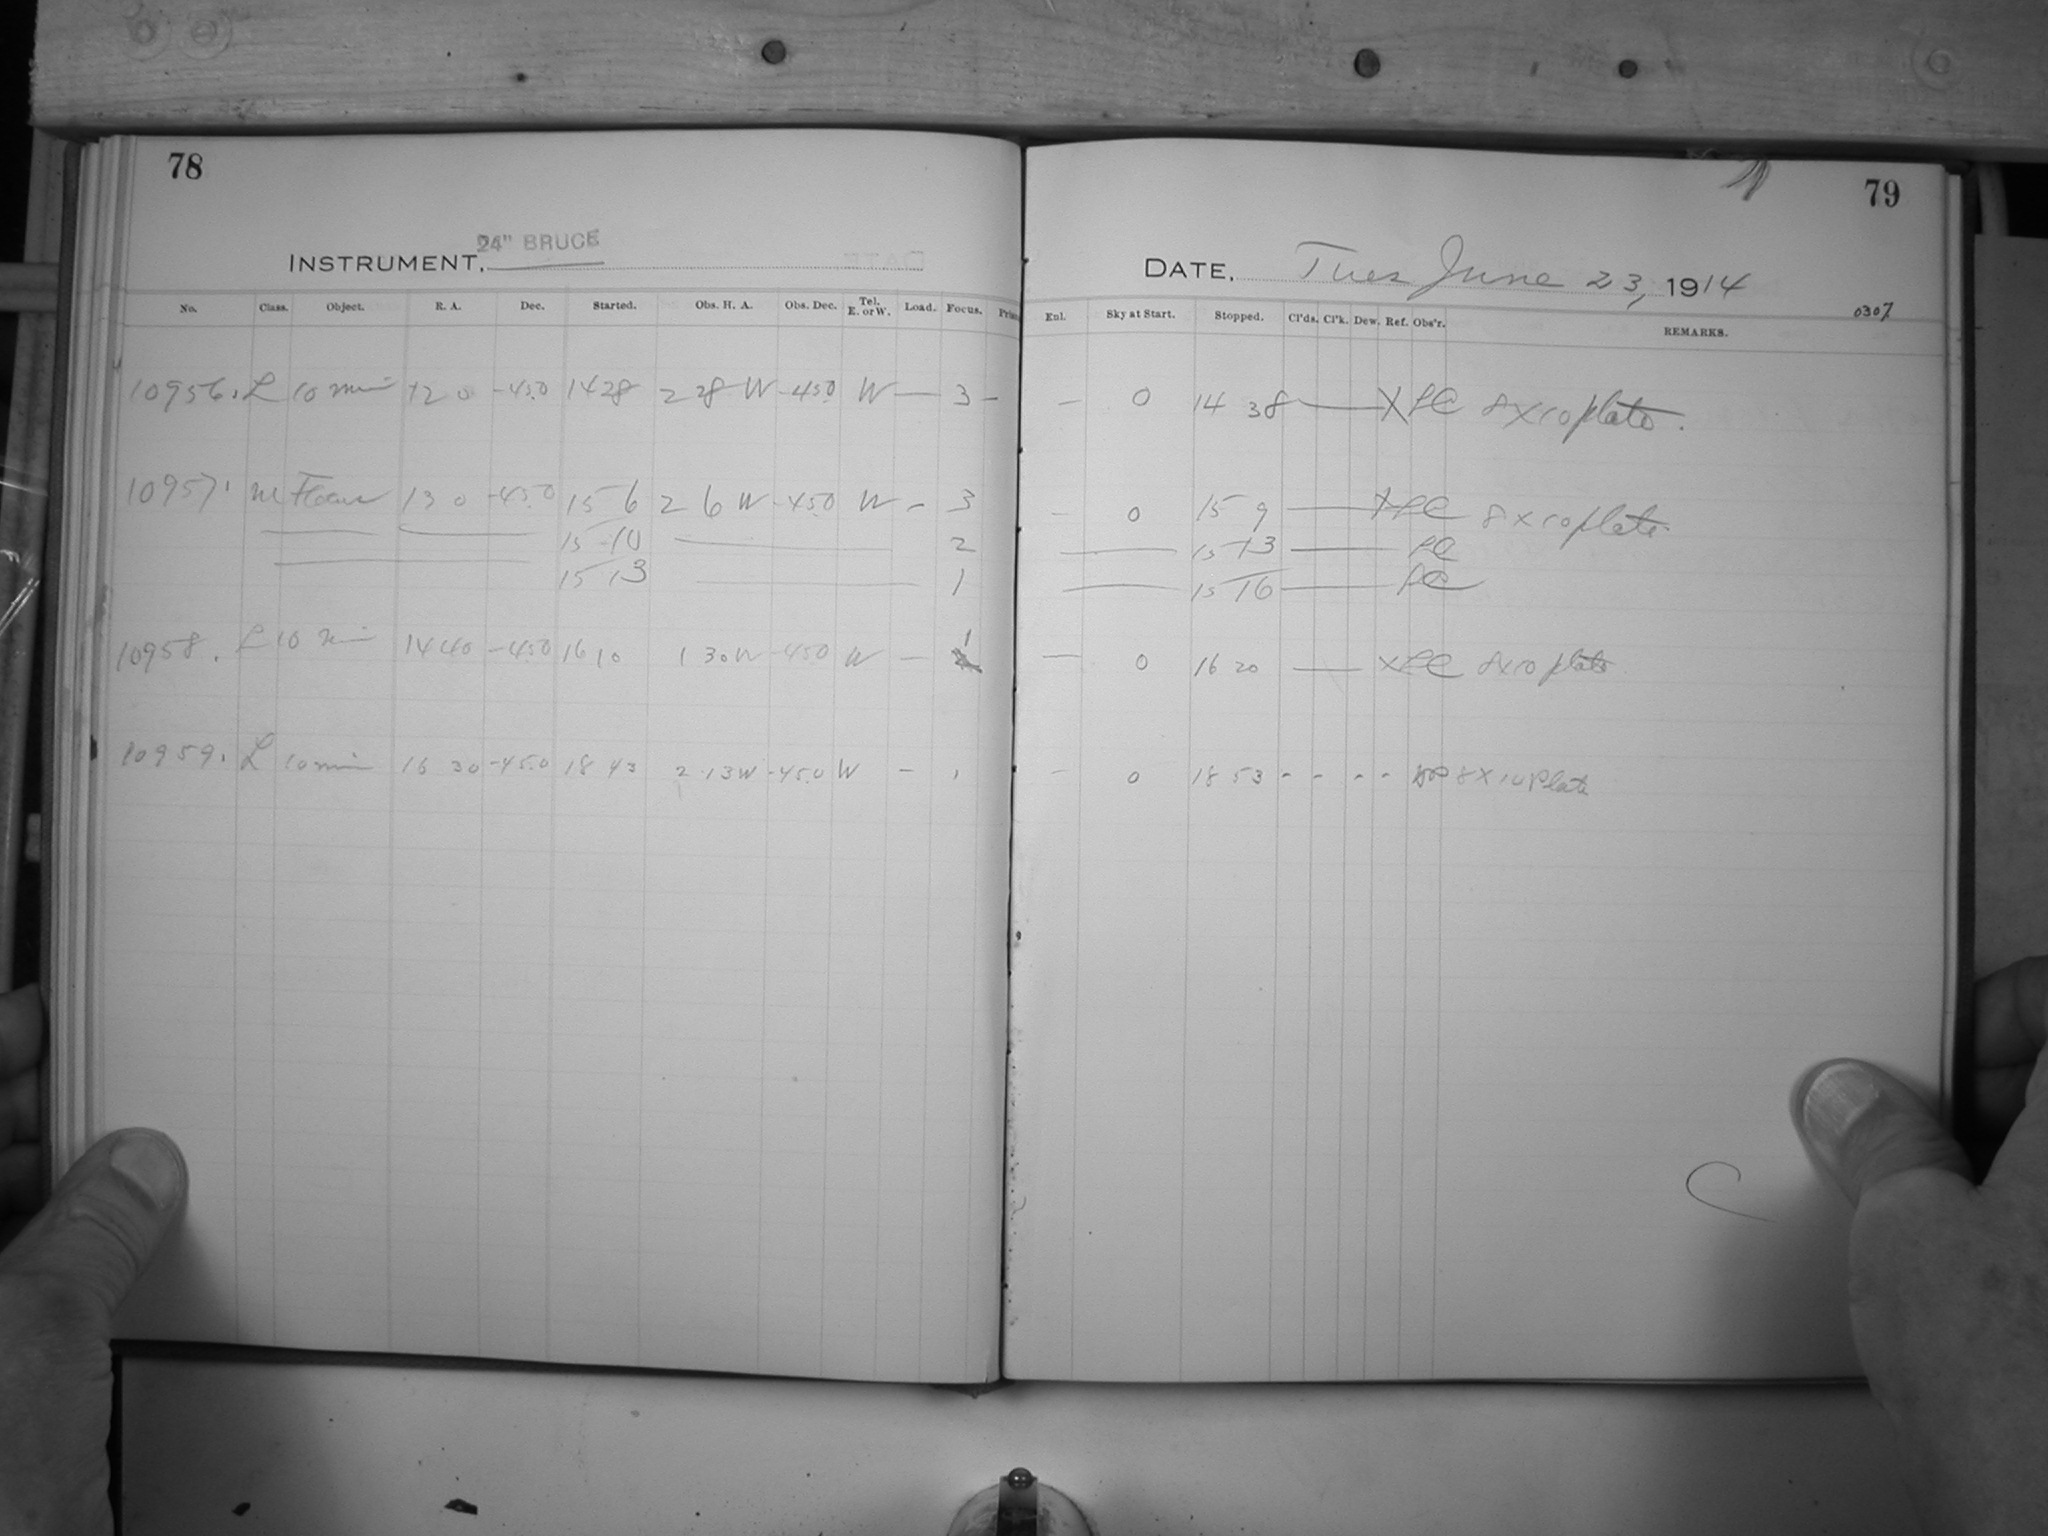 78
INSTRUMENT, 24" BRUCE
No. Class. Object. R. A. Dec. Started. Obs. H. A. Obs. Dec. Tel. E. or W. Load. Focus.
10956. L 10 min 12 0 -45.0 14 28 2 28 W -45.0 W — 3 –
10957. M Focus 13 0 -45.0 15 6 2 6 W -45.0 W – 3
15 10 2
15 13 1
10958. L 10 min 14 40 -45.0 16 10 1 30 W -45.0 W — 1
10959. L 10 min 16 30 -45.0 18 43 2 13 W -45.0 W – 1
79
DATE, Tues June 23, 1914
0307
Enl. Sky at Start. Stopped. Cl'ds. Cl'k. Dew. Ref. Obs'r. REMARKS.
— 0 14 38 — X LC 8x10 plate.
– 0 15 9 — X LC 8x10 plate.
15 13 — LC
15 16 — LC
— 0 16 20 — X LC 8x10 plate
– 0 18 53 - - - - 8X10 Plate